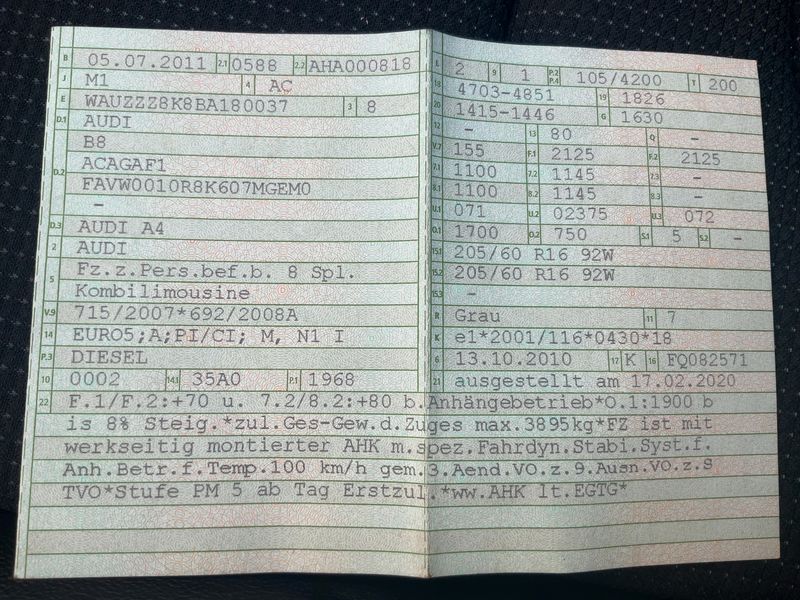 B 05.07.2011 2.1 0588 2.2 AHA000818
J M1 4 AC
E WAUZZZ8K8BA180037 3 8
D.1 AUDI
B8
D.2 ACAGAF1
FAVW0010R8K607MGEM0
-
D.3 AUDI A4
2 AUDI
5 Fz.z.Pers.bef.b. 8 Spl.
Kombilimousine
V.9 715/2007*692/2008A
14 EURO5;A;PI/CI; M, N1 I
P.3 DIESEL
10 0002 14.1 35A0 P.1 1968
L 2 9 1 P.2 P.4 105/4200 T 200
18 4703-4851 19 1826
20 1415-1446 G 1630
12 - 13 80 Q -
V.7 155 F.1 2125 F.2 2125
7.1 1100 7.2 1145 7.3 -
8.1 1100 8.2 1145 8.3 -
U.1 071 U.2 02375 U.3 072
O.1 1700 O.2 750 S.1 5 S.2 -
15.1 205/60 R16 92W
15.2 205/60 R16 92W
15.3 -
R Grau 11 7
K e1*2001/116*0430*18
6 13.10.2010 17 K 16 FQ082571
21 ausgestellt am 17.02.2020
22 F.1/F.2:+70 u. 7.2/8.2:+80 b.Anhängebetrieb*O.1:1900 b
is 8% Steig.*zul.Ges-Gew.d.Zuges max.3895kg*FZ ist mit
werkseitig montierter AHK m.spez.Fahrdyn.Stabi.Syst.f.
Anh.Betr.f.Temp.100 km/h gem.3.Aend.VO.z.9.Ausn.VO.z.S
TVO*Stufe PM 5 ab Tag Erstzul.*ww.AHK lt.EGTG*